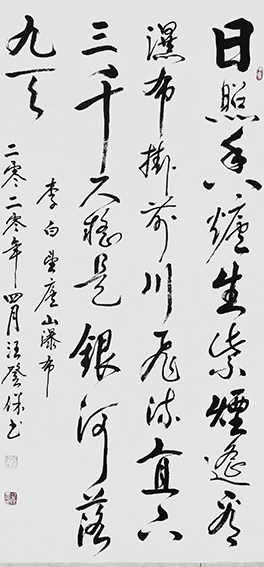 日照香爐生紫煙遙看
瀑布掛前川飛流直下
三千尺疑是銀河落
九天
李白望廬山瀑布
二零二零年四月汪保书